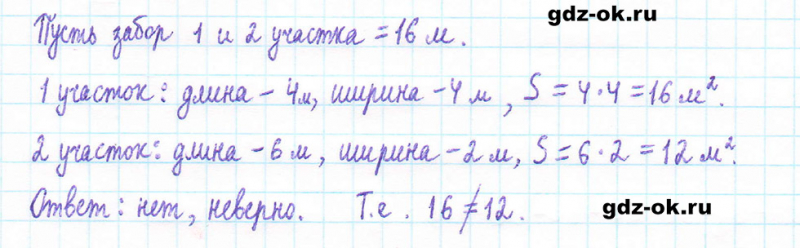 gdz-ok.ru
Пусть забор 1 и 2 участка = 16 м.
1 участок: длина - 4м, ширина - 4 м, S = 4 · 4 = 16 м².
2 участок: длина - 6 м, ширина - 2 м, S = 6 · 2 = 12 м².
Ответ: нет, неверно. Т.е. 16 ≠ 12.
gdz-ok.ru